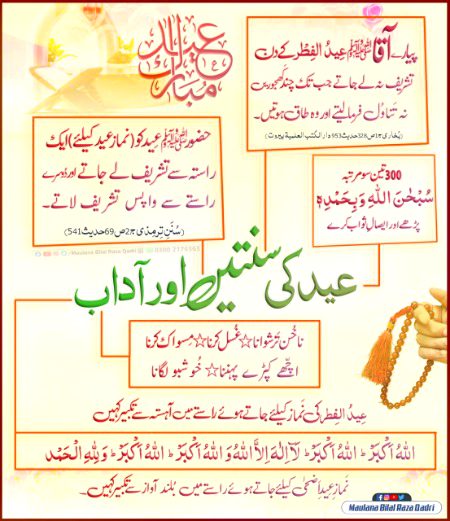 عید مبارک
پیارے آقا ﷺ عیدُ الفِطْر کے دن
تشریف نہ لے جاتے جب تک چند کھجوریں
نہ تَنَاوُل فرما لیتے اور وہ طاق ہوتیں۔
(بُخاری ج1ص328حدیث953دارالکتب العلمیۃ بیروت)
حضور ﷺ عید کو (نمازِ عید کیلئے) ایک
راستہ سے تشریف لے جاتے اور دُوسرے
راستے سے واپس تشریف لاتے۔
(سُنَنِ تِرمِذی ج2ص69حدیث541)
300 تین سو مرتبہ
سُبْحٰنَ اللّٰهِ وَبِحَمْدِهٖ
پڑھے اور ایصالِ ثواب کرے
/Maulana Bilal Raza Qadri
عید کی سنتیں اور آداب
ناخُن تَرشوانا☆غُسل کرنا☆مِسواک کرنا
اچھے کپڑے پہننا☆خُوشبو لگانا
عِیدُ الفِطر کی نَماز کیلئے جاتے ہوئے راستے میں آہستہ سے تکبیر کہیں
اَللّٰهُ اَكْبَرُ ؕ اَللّٰهُ اَكْبَرُ ؕ لَاۤ اِلٰهَ اِلَّا اللّٰهُ وَاللّٰهُ اَكْبَرُ ؕ اَللّٰهُ اَكْبَرُ ؕ وَلِلّٰهِ الْحَمْد
نمازِ عیدِ اضحیٰ کیلئے جاتے ہوئے راستے میں بُلند آواز سے تکبیر کہیں۔
Maulana Bilal Raza Qadri